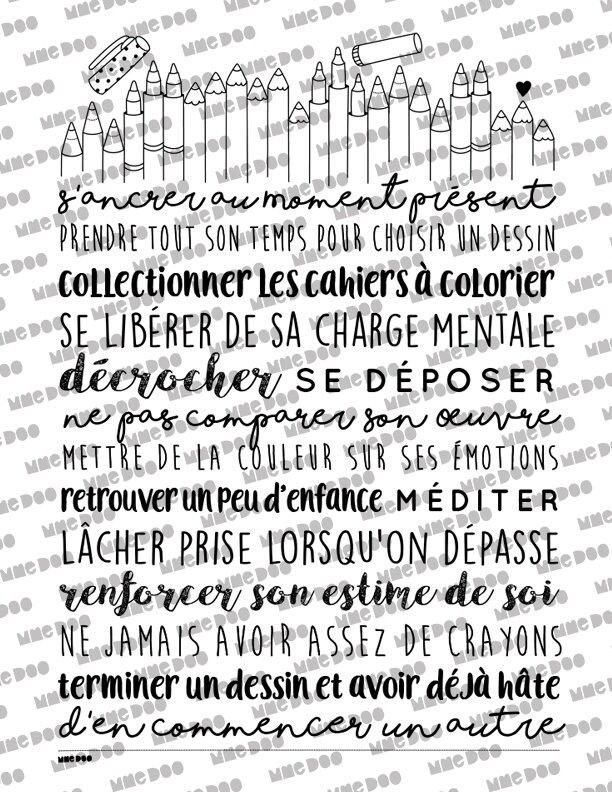 s'ancrer au moment présent
PRENDRE TOUT SON TEMPS POUR CHOISIR UN DESSIN
collectionner les cahiers à colorier
SE LIBÉRER DE SA CHARGE MENTALE
décrocher SE DÉPOSER
ne pas comparer son œuvre
METTRE DE LA COULEUR SUR SES ÉMOTIONS
retrouver un peu d'enfance MÉDITER
LÂCHER PRISE LORSQU'ON DÉPASSE
renforcer son estime de soi
NE JAMAIS AVOIR ASSEZ DE CRAYONS
terminer un dessin et avoir déjà hâte
d'en commencer un autre
MME DOO